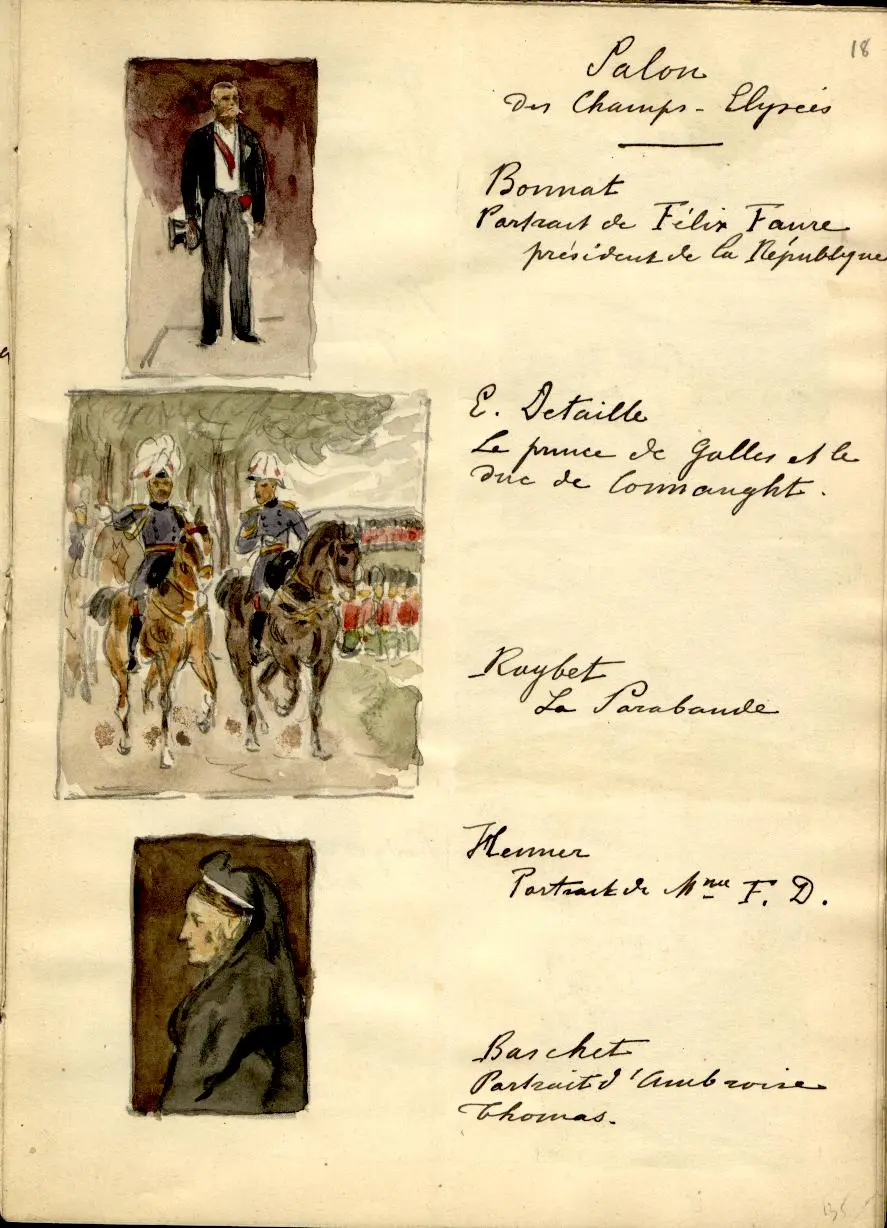 18
Salon
des Champs-Elysées
Bonnat
Portrait de Félix Faure
président de la République
E. Detaille
Le prince de Galles et le
duc de Connaught.
Roybet
La Sarabande
Henner
Portrait de Mme F. D.
Baschet
Portrait d'Ambroise
Thomas.